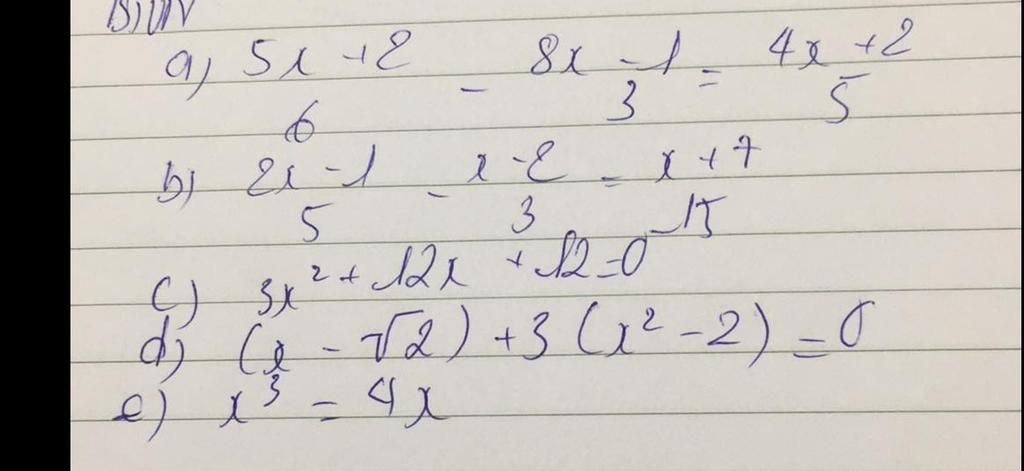 a) 5x+2 / 6 - 8x-1 / 3 = 4x+2 / 5
b) 2x-1 / 5 - x-2 / 3 = x+7 / 15
c) 3x² + 12x + 12 = 0
d) (x - √2) + 3 (x² - 2) = 0
e) x³ = 4x